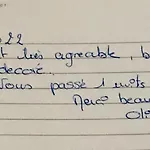 22
t très agréable, b
decoré.
Nous passé 1 nuits
Merci beau